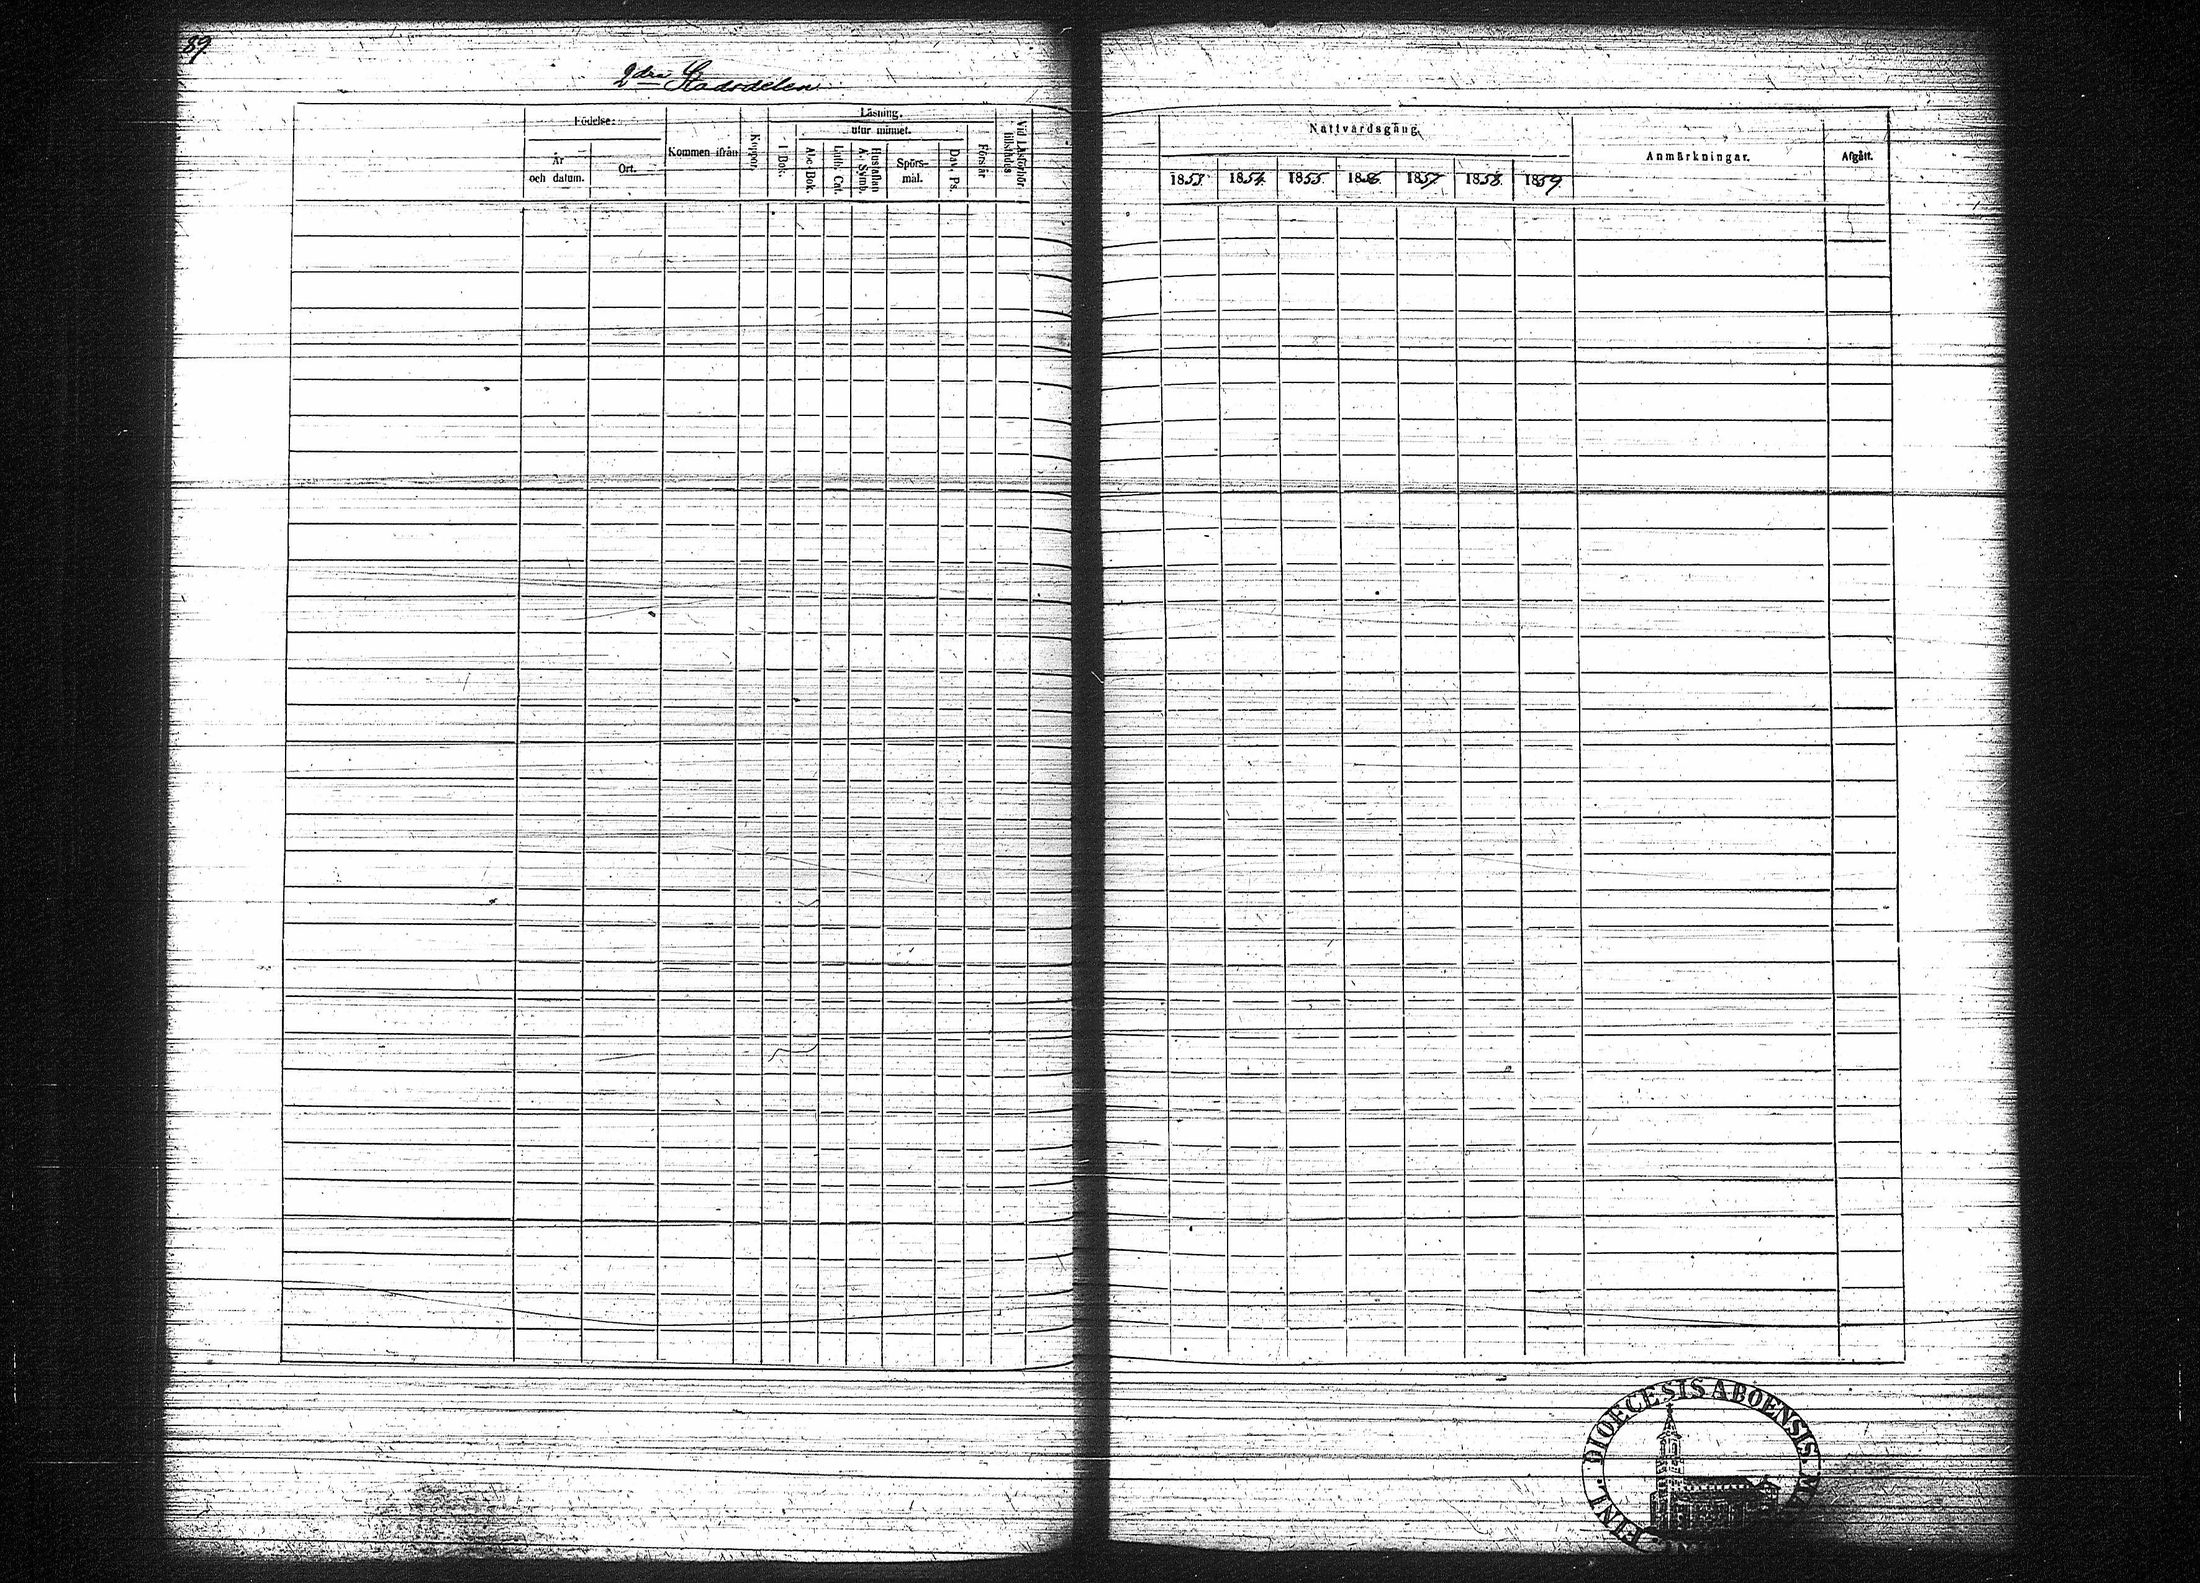 89.
2dra Stadsdelen.
Födelse:
År
och datum.
Ort.
Kommen ifrån
Koppor.
Läsning.
utur minnet.
I Bok.
Abc Bok.
Luth. Cat.
Hustaflan
A. Symb.
Spörs-
mål.
Dav. Ps.
Förstår
Vid Läsförhör
tillstädes
Nattvardsgång
1853.
1854.
1855.
1856.
1857.
1858.
1859.
Anmärkningar.
Afgått.
FINL. DIOECESIS ABOENSIS.